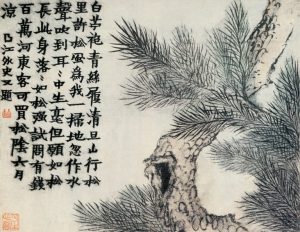 白苧袍青絲履清旦山行松
里許松風為我一掃地忽作水
聲吹到耳〻中生意但願如松
長此身落〻如松強試問有錢
百萬河東客可買松陰六月
涼 曲江外史又題